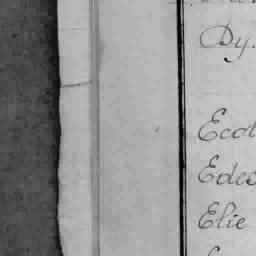 Dy.
Ecot
Edeo
Elie